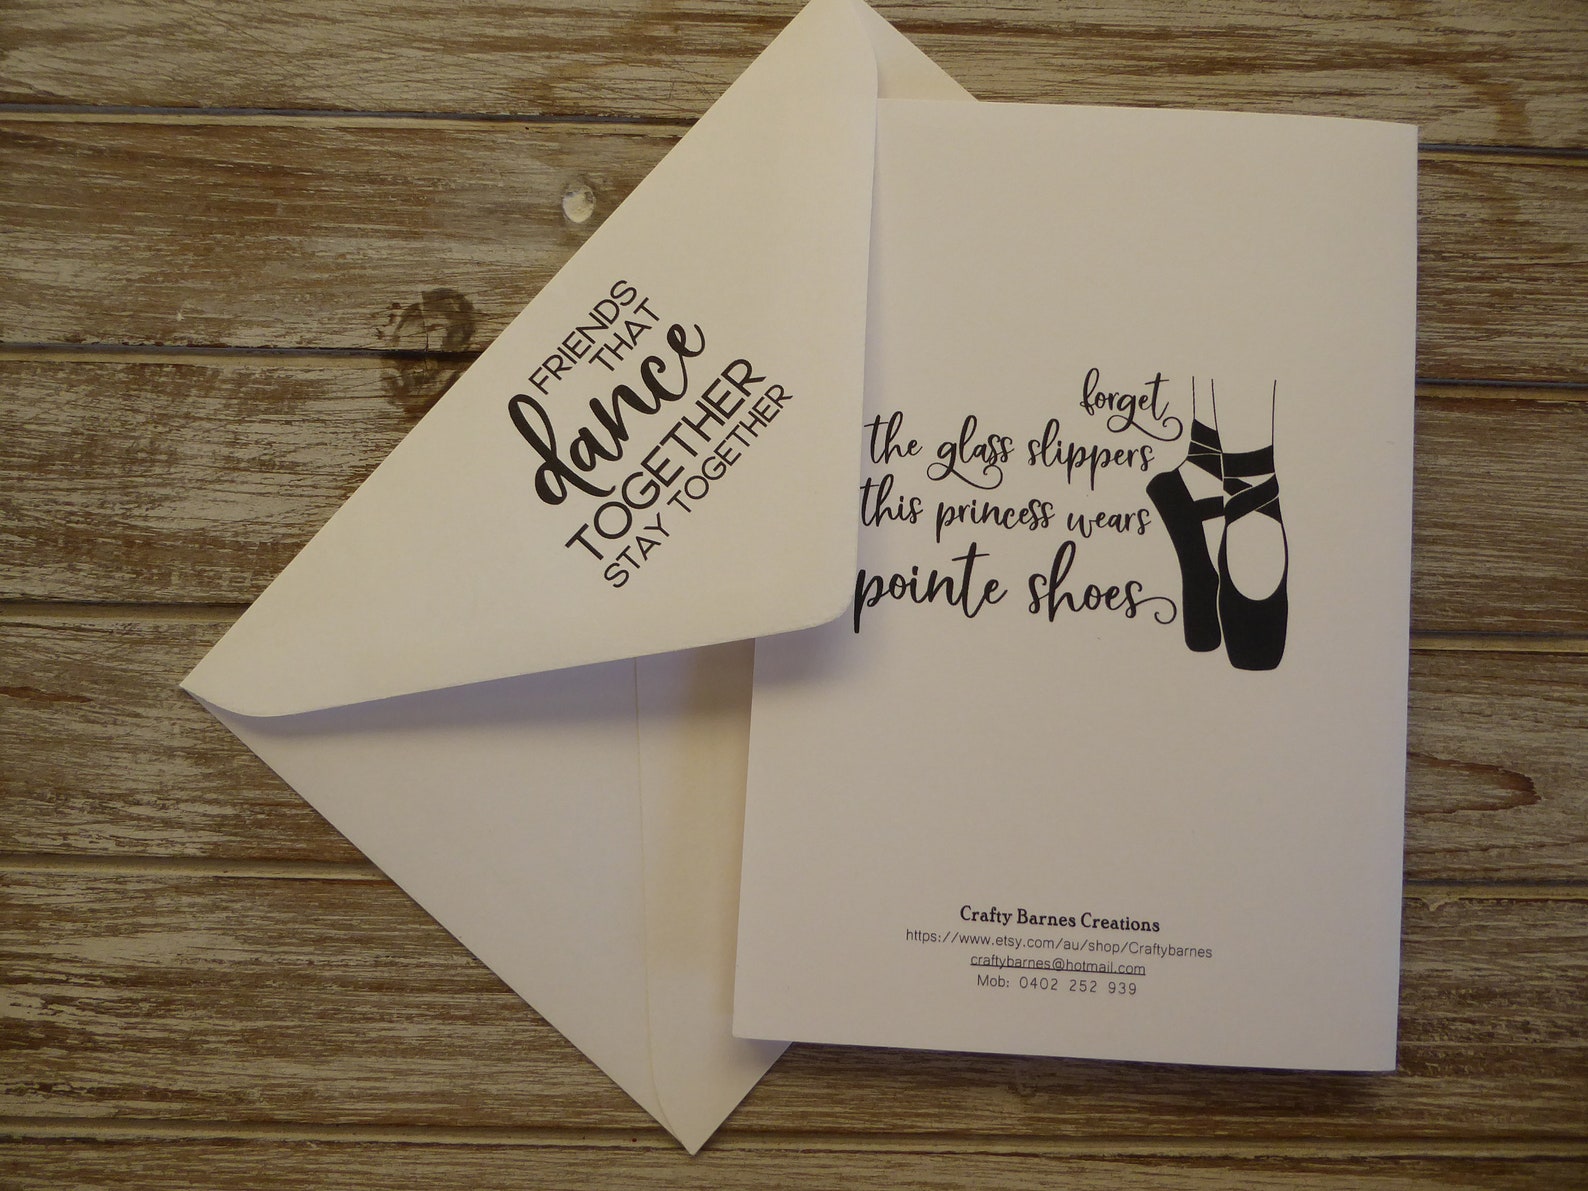 FRIENDS
THAT
dance
TOGETHER
STAY TOGETHER
forget
the glass slippers
this princess wears
pointe shoes
Crafty Barnes Creations
https://www.etsy.com/au/shop/Craftybarnes
craftybarnes@hotmail.com
Mob: 0402 252 939